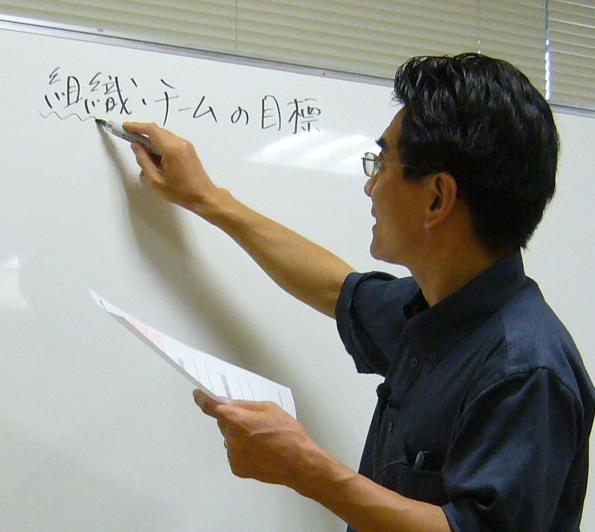 組織・チームの目標